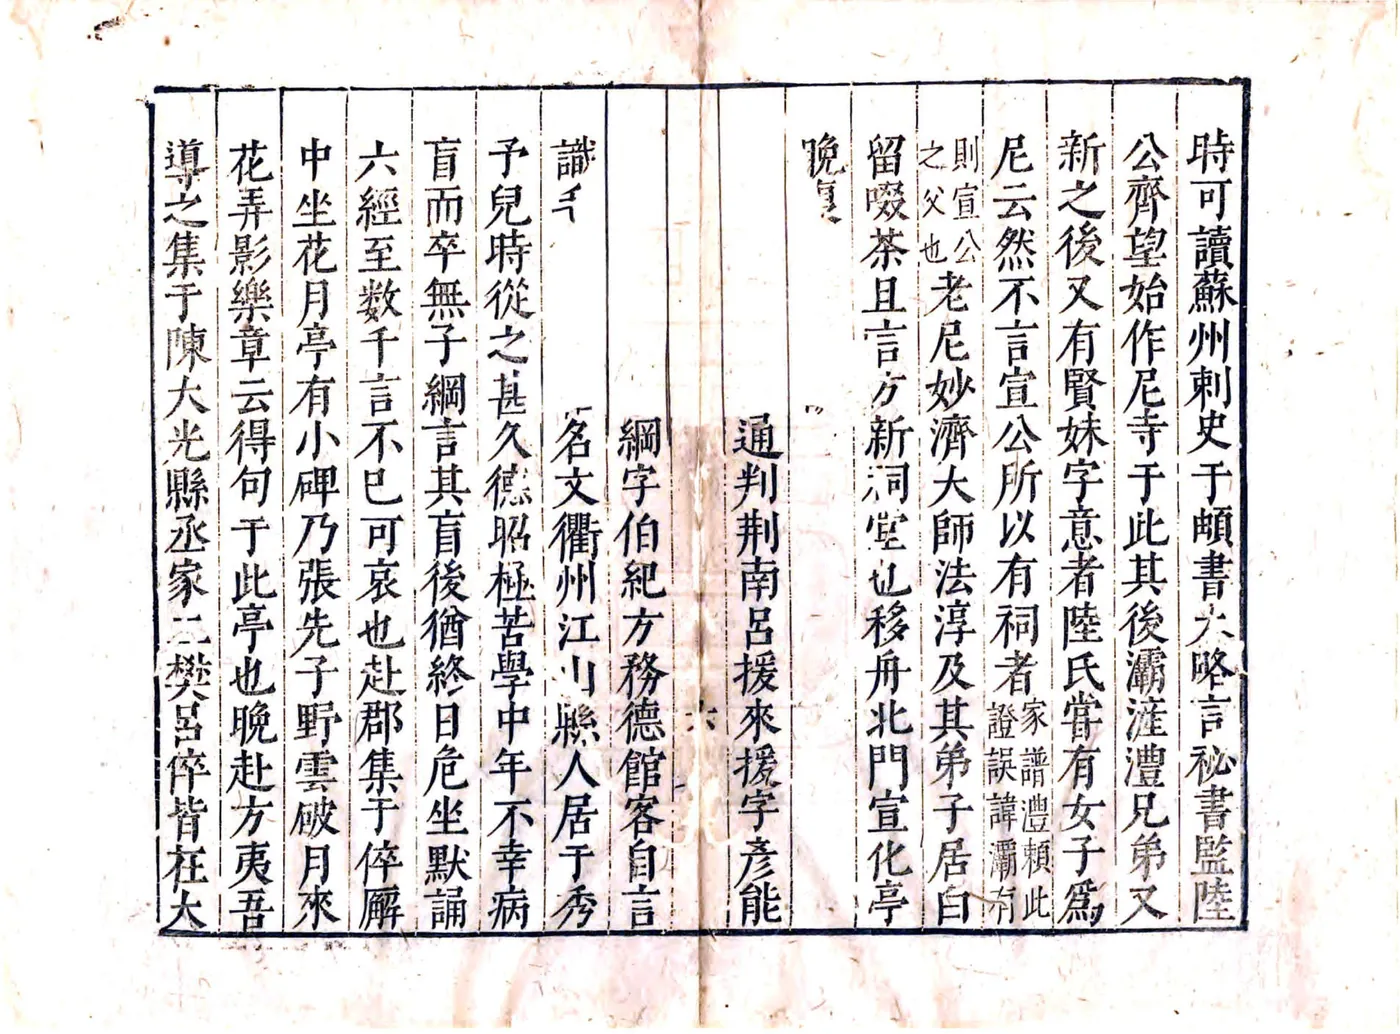 時可讀蘇州刺史于頔書大略言秘書監陸
公齊望始作尼寺于此其後灞滻澧兄弟又
新之後又有賢妹字意者陸氏甞有女子爲
尼云然不言宣公所以有祠者家譜澧頼此證誤諱灞有
則宣公之父也老尼妙濟大師法淳及其弟子居白
留啜茶且言方新祠堂也移舟北門宣化亭
晩復
通判荆南呂援來援字彥能
六
綱字伯紀方務德館客自言
識
名文衢州江山縣人居于秀
予兒時從之甚久德昭極苦學中年不幸病
盲而卒無子綱言其盲後猶終日危坐默誦
六經至数千言不已可哀也赴郡集于倅廨
中坐花月亭有小碑乃張先子野雲破月來
花弄影樂章云得句于此亭也晚赴方夷吾
導之集于陳大光縣丞家二樊呂倅皆在大